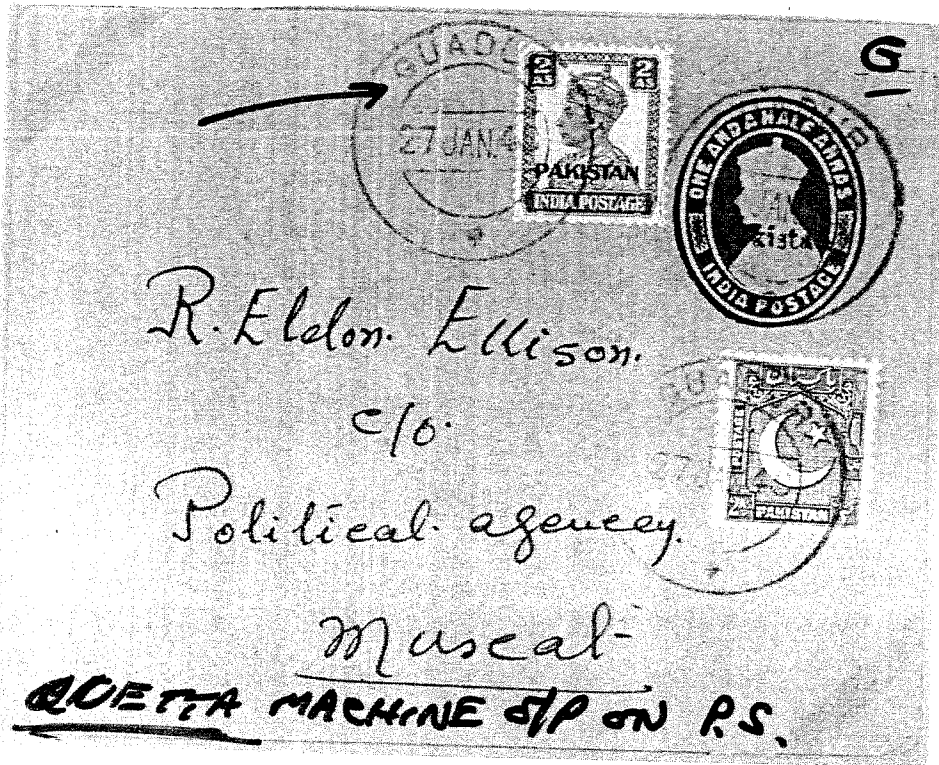 G
GUADU
27 JAN. 4
2 AS
2 AS
PAKISTAN
INDIA POSTAGE
ONE AND A HALF ANNAS
INDIA POSTAGE
R. Eldon. Ellison.
c/o.
Political agencey.
Muscat
GUA
27
POSTAGE
PAKISTAN
QUETTA MACHINE O/P ON P.S.